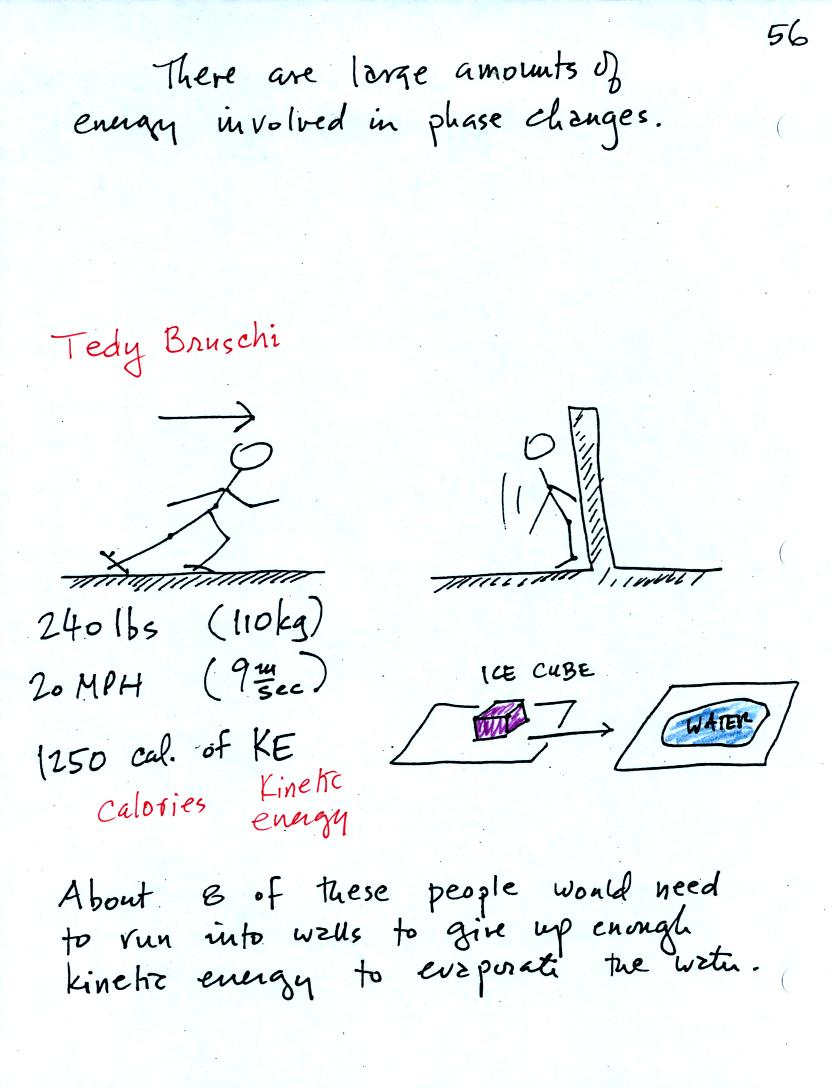 56
There are large amounts of
energy involved in phase changes.
Tedy Bruschi
240 lbs (110kg)
20 MPH (9 m/sec)
1250 cal. of KE
calories Kinetic
energy
ICE CUBE
WATER
About 8 of these people would need
to run into walls to give up enough
kinetic energy to evaporate the water.